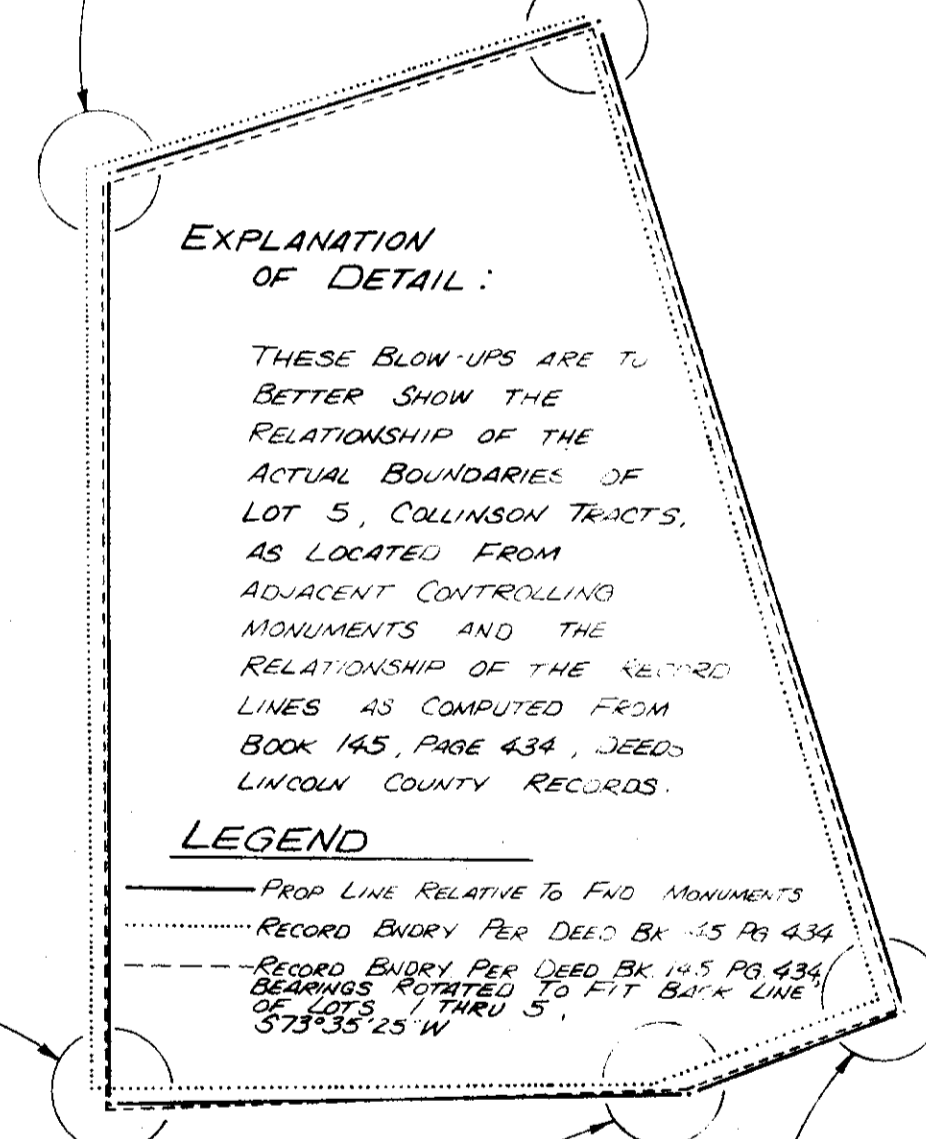 EXPLANATION
OF DETAIL:
THESE BLOW-UPS ARE TO
BETTER SHOW THE
RELATIONSHIP OF THE
ACTUAL BOUNDARIES OF
LOT 5, COLLINSON TRACTS,
AS LOCATED FROM
ADJACENT CONTROLLING
MONUMENTS AND THE
RELATIONSHIP OF THE RECORD
LINES AS COMPUTED FROM
BOOK 145, PAGE 434, DEEDS
LINCOLN COUNTY RECORDS.
LEGEND
PROP LINE RELATIVE TO FND MONUMENTS
RECORD BNDRY PER DEED BK 145 PG 434
RECORD BNDRY PER DEED BK. 145 PG. 434,
BEARINGS ROTATED TO FIT BACK LINE
OF LOTS 1 THRU 5,
S73°35'25"W